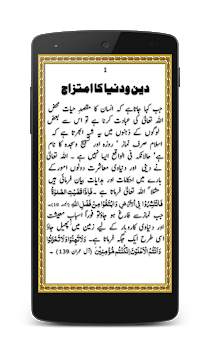 1
دین و دنیا کا امتزاج
جب کہا جاتا ہے کہ انسان کا مقصدِ حیات محض
اللہ تعالیٰ کی عبادت کرنا ہے تو اس سے بعض
لوگوں کے ذہنوں میں یہ شبہ ابھرتا ہے کہ
اسلام صرف نماز ' روزہ اور تسبیح و وظیفہ کا نام
ہے' حالانکہ فی الواقع ایسا نہیں ہے ۔ اللہ تعالیٰ
نے دینی اور دنیاوی معاشرت دونوں امور کے
بارے میں احکامات اور ہدایات بیان فرمائی ہیں
مثلاً اللہ تعالیٰ فرماتا ہے ۔ فَإِذَا قُضِيَتِ الصَّلَوٰةُ
فَانْتَشِرُوا فِي الْأَرْضِ وَابْتَغُوا مِنْ فَضْلِ اللَّهِ
جب نماز سے فارغ ہو جاؤ تو فوراً اسبابِ معیشت
اور دنیاوی کاروبار کے لیے زمین میں پھیل جاؤ
اسی طرح ایک جگہ فرماتا ہے۔ وَلَا تَهِنُوا وَلَا تَحْزَنُوا
وَأَنْتُمُ الْأَعْلَوْنَ إِنْ كُنْتُمْ مُؤْمِنِينَ (آل عمران 139) ۔